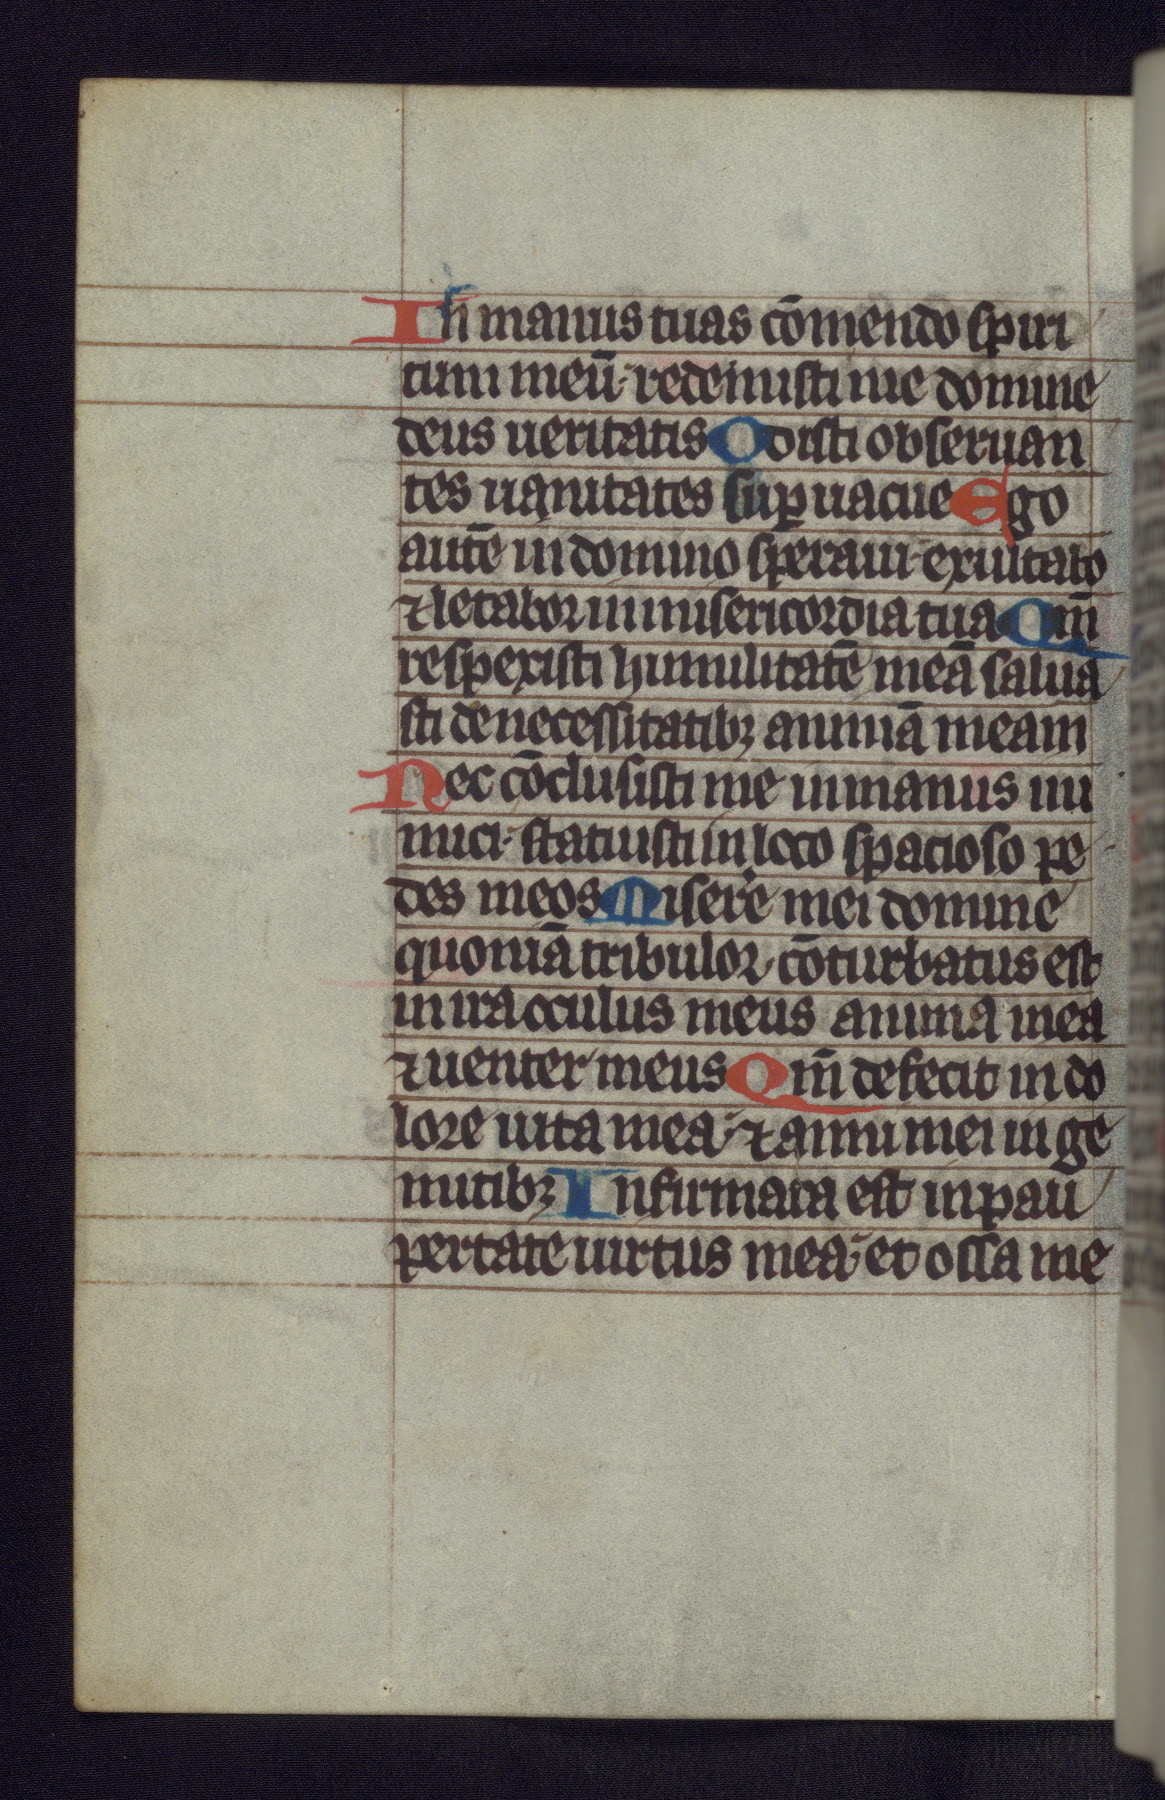 In manus tuas cōmendo spiri
tum meū· redemisti me domine
deus ueritatis Odisti obseruan
tes uanitates sup uacue Ego
autē in domino speraui· exultabo
⁊ letabor in misericordia tua Qm̄
respexisti humilitatē meā salua
sti de necessitatibꝫ animā meam
Nec cōclusisti me in manus ini
mici· statuisti in loco spacioso pe
des meos Miserē mei domine
quoniā tribulor· cōturbatus est
in ira oculus meus anima mea
⁊ uenter meus Qm̄ defecit in do
lore uita mea· ⁊ anni mei in ge
mitibꝫ Infirmata est in pau
pertate uirtus mea· et ossa me